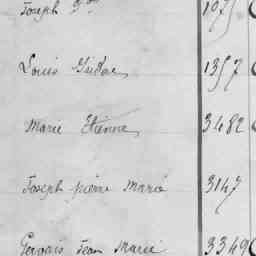 Joseph 107
Louis Isidore 1357
Marie Etienne 3482
Joseph pierre Marie 3147
Gervais Jean Marie 3349